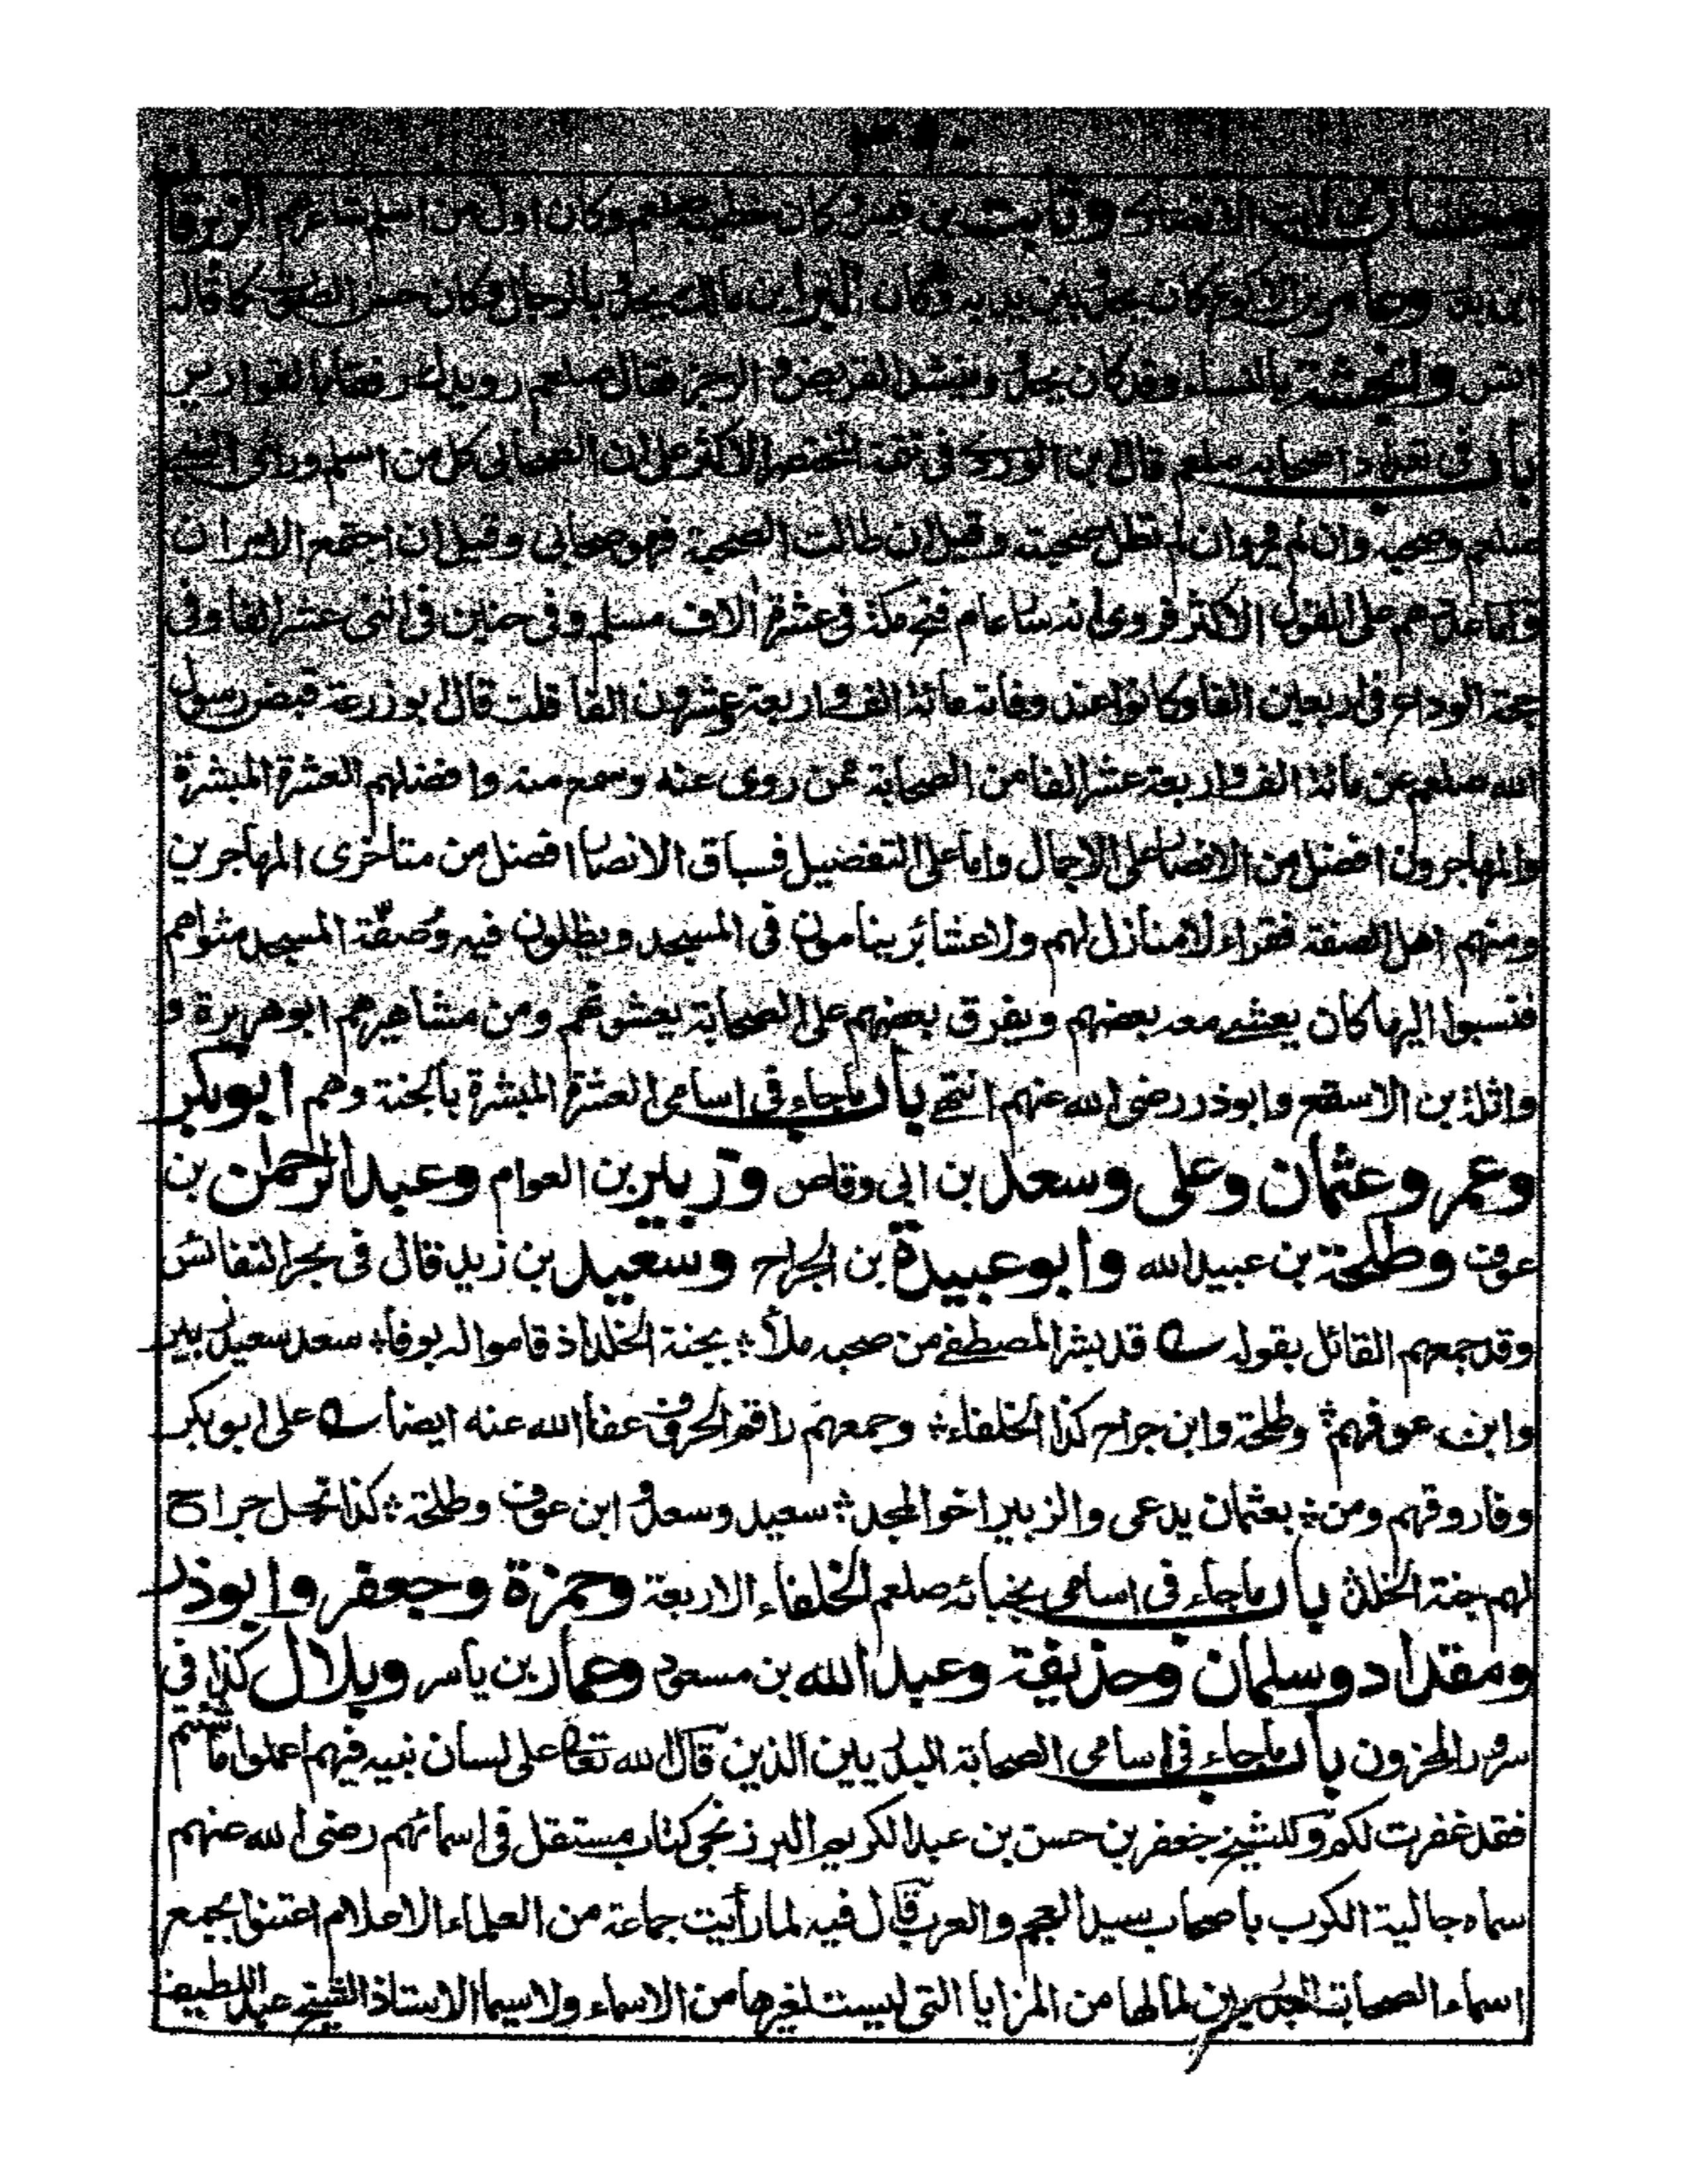 وحسان بن ثابت الانصاري وثابت بن قيس كان خطيبه صلعم وكان اول من اسلم شاعرهم الزبرقان
ابن بدر وعامر بن الاكوع كان يحدو بين يديه وكان البراء بن مالك يحدو بالرجال وكان حسن الصوت كما قاله
انس وانجشة بالنساء وقد كان يحدو وينشد القريض و الرجز فقال صلعم رويدك رفقا بالقوارير
باب في تعداد اصحابه صلعم قال ابن الوردي في تتمة المختصر الاكثر على ان الصحابي كل من اسلم وراى النبي
صلعم وصحبه وان لم يرو وان لم تطل صحبته وقيل ان طالت الصحبة فهو صحابي وقيل ان اجتمع الامران
واما عدتهم على القول الاكثر فروي انه سار عام فتح مكة في عشرة ألاف مسلم وفى حنين في اثنى عشر الفا وفى
حجة الوداع في اربعين الفا وكانوا عند وفاته مائة الف واربعة وعشرون الفا قلت قال ابو زرعة قبض رسول
الله صلعم عن مائة الف واربعة عشر الفا من الصحابة ممن روى عنه وسمع منه وافضلهم العشرة المبشرة
والمهاجرون افضل من الانصار على الاجمال واما على التفضيل فسباق الانصار افضل من متأخرى المهاجرين
ومنهم اهل الصفة فقراء لا منازل لهم ولا عشائر ينامون في المسجد ويظلون فيه وُصفّة المسجد مثواهم
فنسبوا اليها كان يعشى معه بعضهم ويفرق بعضهم على الصحابة يعشونهم ومن مشاهيرهم ابو هريرة و
واثلة بن الاسقع وابوذر رضى الله عنهم انتهى باب ماجاء في اسامى العشرة المبشرة بالجنة وهم ابوبكر
وعمر وعثمان وعلى وسعد بن ابى وقاص وزبير بن العوام وعبد الرحمن بن
عوف وطلحة بن عبيد الله وابو عبيدة بن الجراح وسعيد بن زيد قال في بحر النفائس
وقد جمعهم القائل بقوله قد بشر المصطفى من صحبه ملأ بجنة الخلد اذ قاموا له بوفا سعد سعيد زبير
وابن عوفهم وطلحة وابن جراح كذا الخلفاء وجمعهم راقم الحروف عفا الله عنه ايضا على ابو بكر
وفاروقهم ومن بعثمان يدعى والزبير اخو المجد سعيد وسعد و ابن عوف وطلحة كذا نجل جراح
لهم جنة الخلد باب ماجاء في اسامى نجبائه صلعم الخلفاء الاربعة وحمزة وجعفر وابوذر
ومقداد وسلمان وحذيفة وعبد الله بن مسعود وعمار بن ياسر وبلال كذا في
سرور المحزون باب ماجاء في اسامى الصحابة البدريين الذين قال الله تعالى على لسان نبيه فيهم اعملوا ما شئتم
فقد غفرت لكم وللشيخ جعفر بن حسن بن عبد الكريم البرزنجى كتاب مستقل في اسمائهم رضى الله عنهم
سماه جالية الكرب باصحاب سيد العجم والعرب قال فيه لما رأيت جماعة من العلماء الاعلام اعتنوا بجمع
اسماء الصحابة البدريين لما لها من المزايا التى ليست لغيرها من الاسماء ولا سيما الاستاذ الشيخ عبد اللطيف